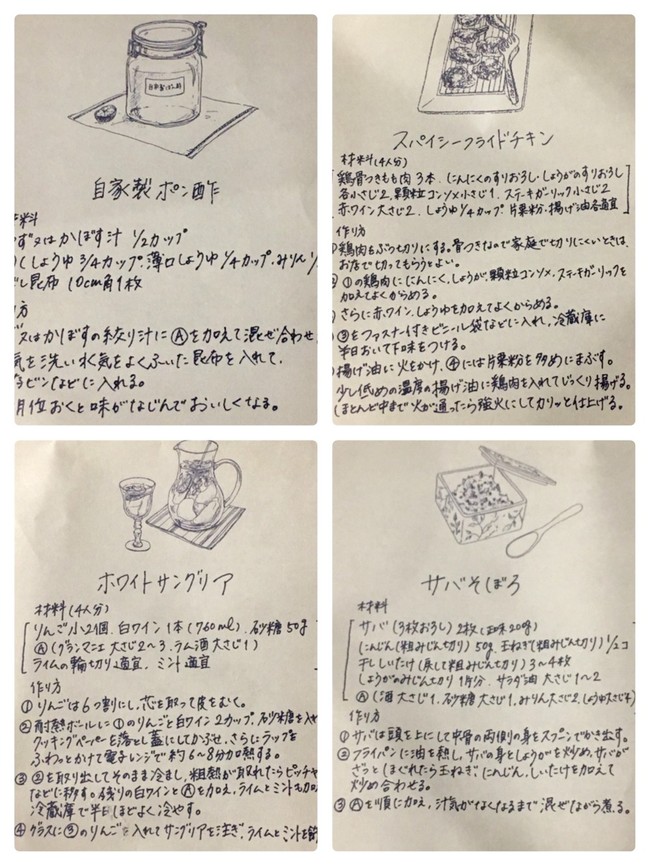 自家製ポン酢
自家製ポン酢
材料
ずヌはかぼす汁 1/2カップ
(しょうゆ 3/4カップ、薄口しょうゆ 1/4カップ、みりん 1/
し昆布 10cm角1枚
方
ヌはかぼすの絞り汁にⒶを加えて混ぜ合わせ
気を洗い水気をよくふいた昆布を入れて、
ビンなどに入れる。
月位おくと味がなじんでおいしくなる。
スパイシーフライドチキン
材料(4人分)
鶏骨つきもも肉 3本、にんにくのすりおろし・しょうがのすりおろし
各小さじ2、顆粒コンソメ小さじ1、ステーキガーリック小さじ2
赤ワイン大さじ2、しょうゆ1/4カップ 片栗粉・揚げ油各適宜
作り方
鶏肉もぶつ切りにする。骨つきなので家庭で切りにくいときは、
お店で切ってもらうとよい。
② ①の鶏肉ににんにく、しょうが、顆粒コンソメ、ステーキガーリックを
加えてよくからめる。
さらに赤ワイン、しょうゆを加えてよくからめる。
③をファスナー付きビニール袋などに入れ、冷蔵庫に
半日おいて下味をつける。
揚げ油に火をかけ、④には片栗粉を多めにまぶす。
少し低めの温度の揚げ油に鶏肉を入れてじっくり揚げる。
ほとんど中まで火が通ったら強火にしてカリッと仕上げる。
ホワイトサングリア
材料(4人分)
りんご小2個、白ワイン1本(760ml)、砂糖50g
Ⓐ(グランマニエ 大さじ2〜3、ラム酒大さじ1)
ライムの輪切り適宜、ミント適宜
作り方
① りんごは6つ割にし、芯を取って皮をむく。
② 耐熱ボールに①のりんごと白ワイン2カップ、砂糖を入れ
クッキングペーパーを落とし蓋にしてかぶせ、さらにラップを
ふわっとかけて電子レンジで約6〜8分加熱する。
③ ②を取り出してそのまま冷まし、粗熱が取れたらピッチャ
などに移す。残りの白ワインとⒶを加え、ライムとミントも加え
冷蔵庫で半日ほどよく冷やす。
④ グラスに③のりんごを入れてサングリアを注ぎ、ライムとミントを飾
サバそぼろ
材料
サバ(3枚おろし)2枚(正味20g)
にんじん(粗みじん切り)50g、玉ねぎ(粗みじん切り)1/2コ
干ししいたけ(戻して粗みじん切り)3〜4枚
しょうがのみじん切り1片分、サラダ油 大さじ1〜2
Ⓐ(酒大さじ1、砂糖大さじ1、みりん大さじ2、しょうゆ大さじ4)
作り方
① サバは頭を上にして中骨の両側の身をスプーンでかき出す。
② フライパンに油を熱し、サバの身としょうがを炒め、サバが
ざっとほぐれたら玉ねぎ、にんじん、しいたけを加えて
炒め合わせる。
③ Ⓐを順に加え、汁気がなくなるまで混ぜながら煮る。